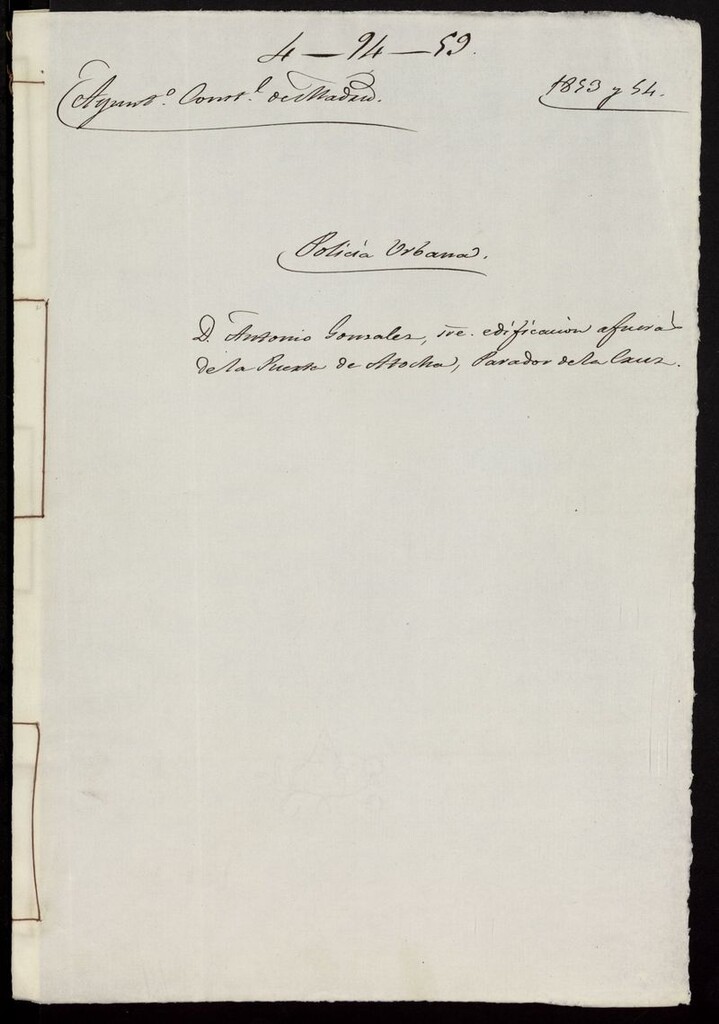 4 — 94 — 59.
Ayunt.º Const.l de Madrid.
1853 y 54.
Policía Urbana.
D. Antonio Gonzalez, sre. edificacion afueras
de la Puerta de Atocha, Parador de la Cruz.